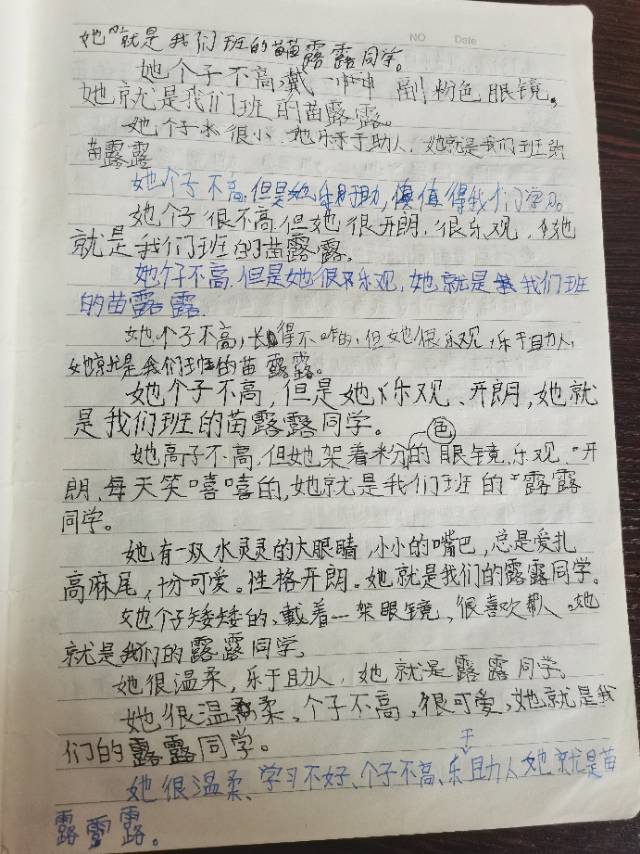 她就是我们班的苗露露同学。
NO Date
她个子不高戴一 副粉色眼镜,
她就是我们班的苗露露。
她个子 很小,她乐于助人,她就是我们班的
苗露露
她个子不高,但是她乐于助,值得我们学习。
她个子很不高,但她很开朗,很乐观,她
就是我们班的苗露露。
她个子不高,但是她很乐观,她就是我们班
的苗露露.
她个子不高,长得不咋的,但她很乐观,乐于助人,
她就是我们班的苗露露。
她个子不高,但是她乐观、开朗,她就
是我们班的苗露露同学。
她高子不高,但她架着粉色的眼镜,乐观、开
朗,每天笑嘻嘻的,她就是我们班的露露
同学。
她有一双水灵灵的大眼睛,小小的嘴巴,总是爱扎
高麻尾,十分可爱。性格开朗。她就是我们的露露同学。
她个子矮矮的、戴着一架眼镜,很喜欢帮人。她
就是我们的露露同学。
她很温柔,乐于助人,她就是露露同学。
她很温柔。个子不高,很可爱,她就是我
们的露露同学。
她很温柔、学习不好、个子不高、乐于助人她就是苗
露露。